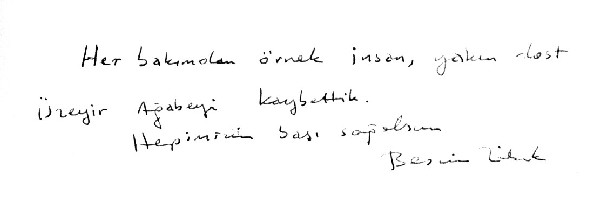 Her bakımdan örnek insan, yakın dost
Üzeyir Ağabeyi kaybettik.
Hepimizin başı sağolsun